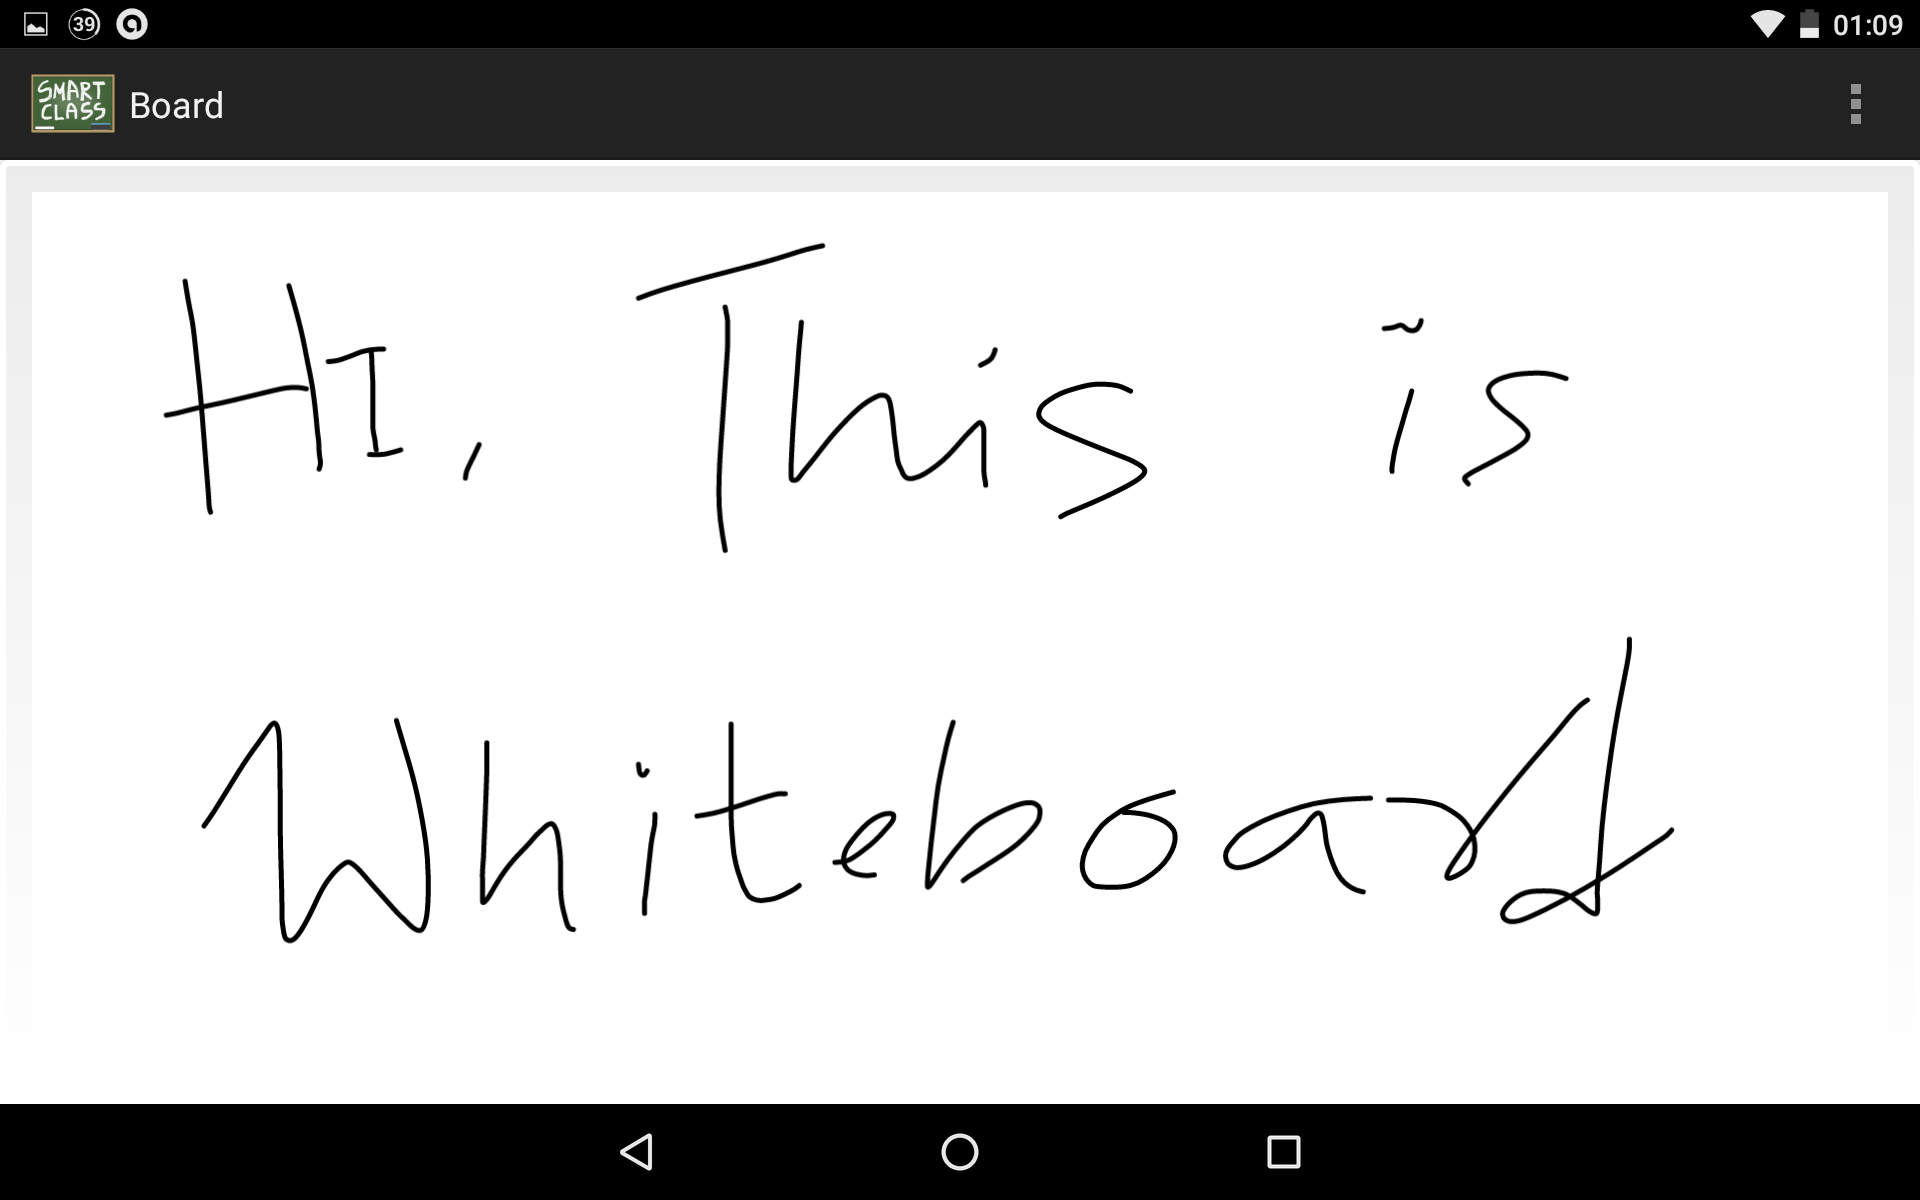 39 01:09
SMART
CLASS
Board
HI, This is
Whiteboard